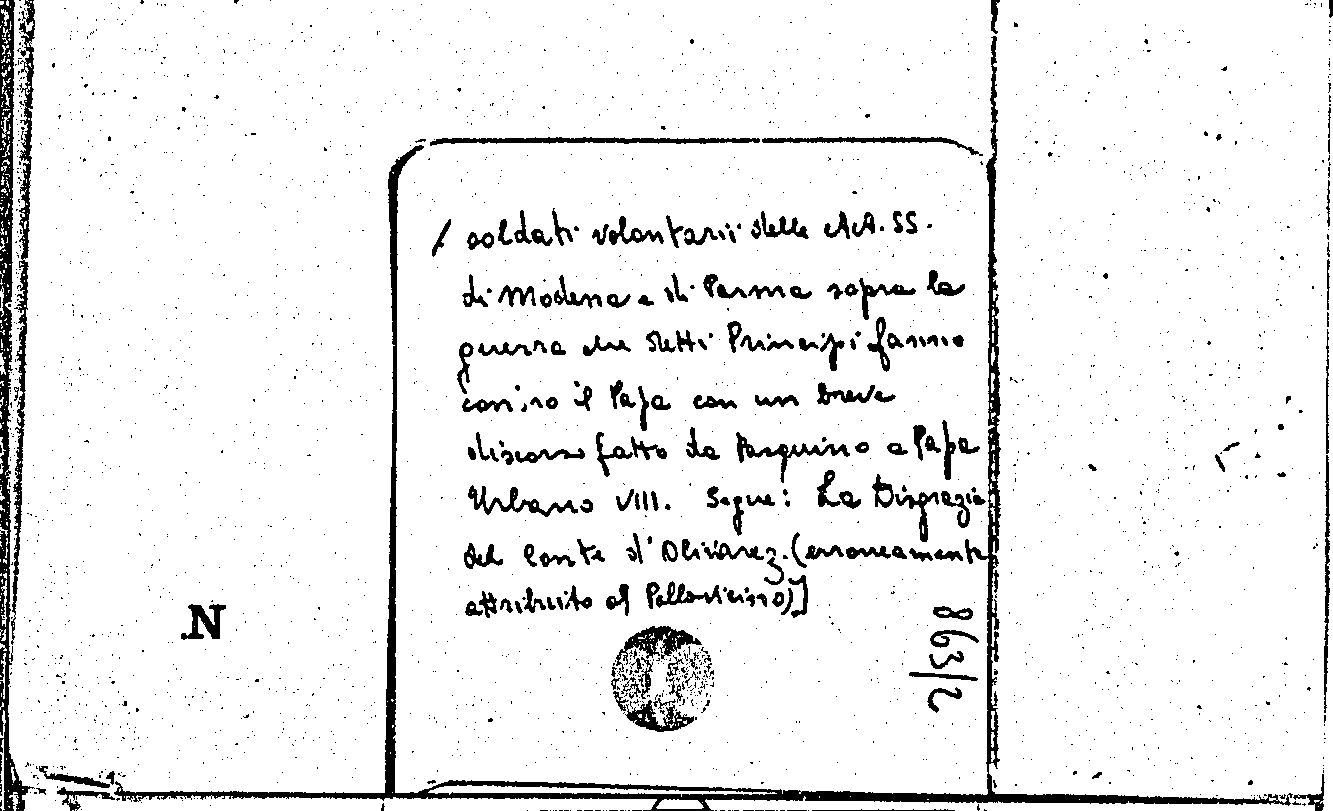 / soldati volontarii delle AA. SS.
di Modena e di Parma sopra la
guerra che detti Principi fanno
contro il Papa con un breve
discorso fatto da Pasquino a Papa
Urbano VIII. Segue: La Disgrazia
del Conte d'Olivarez. (erroneamente
attribuito al Pallavicino)]
863/2
N